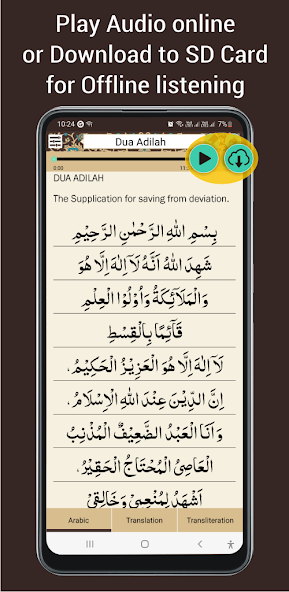 Play Audio online
or Download to SD Card
for Offline listening
10:24
7%
Dua Adilah
0:00
DUA ADILAH
The Supplication for saving from deviation.
بِسْمِ اللهِ الرَّحْمٰنِ الرَّحِيْمِ
شَهِدَ اللهُ اَنَّهُ لَآ اِلٰهَ اِلَّا هُوَ
وَالْمَلَآئِكَةُ وَاُوْلُوْا الْعِلْمِ
قَآئِمًا بِالْقِسْطِ
لَآ اِلٰهَ اِلَّا هُوَ الْعَزِيْزُ الْحَكِيْمُ،
اِنَّ الدِّيْنَ عِنْدَ اللهِ الْاِسْلَامُ،
وَاَنَا الْعَبْدُ الضَّعِيْفُ الْمُذْنِبُ
الْعَاصِيُ الْمُحْتَاجُ الْحَقِيْرُ،
اَشْهَدُ لِمُنْعِمِيْ وَخَالِقِيْ
Arabic
Translation
Transliteration